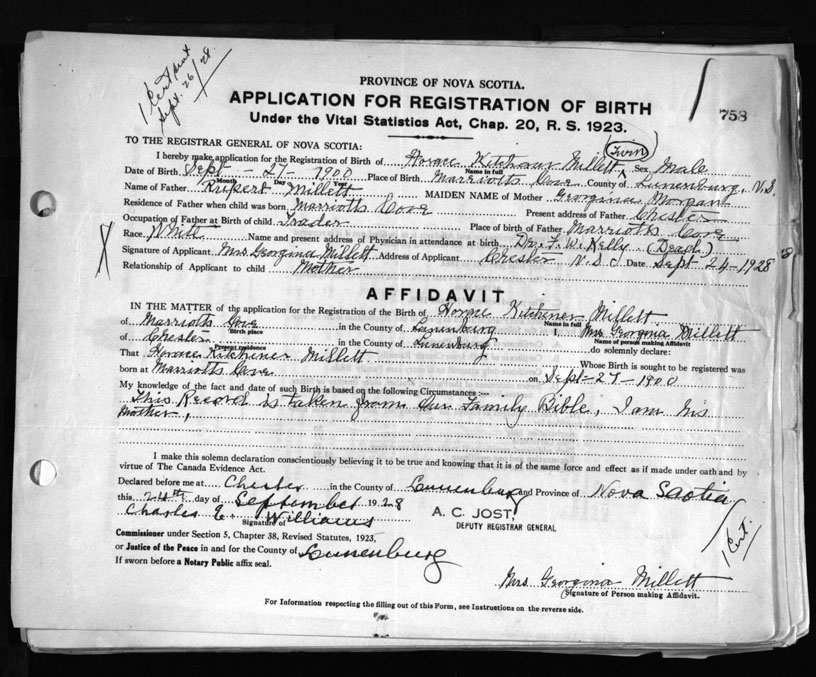 1 Cert sent
Sept. 26/28
PROVINCE OF NOVA SCOTIA.
758
APPLICATION FOR REGISTRATION OF BIRTH
Under the Vital Statistics Act, Chap. 20, R. S. 1923.
TO THE REGISTRAR GENERAL OF NOVA SCOTIA:
(Twin)
I hereby make application for the Registration of Birth of Horace Kitchener Millett Sex Male
Name in full
Date of Birth Sept - 27 - 1900 Place of Birth Marriotts Cove County of Lunenburg, N.S.
Month Day Year
Name of Father Rupert Millett MAIDEN NAME of Mother Georgina Morgant
Residence of Father when child was born Marriotts Cove Present address of Father Chester
Occupation of Father at Birth of child Trader Place of birth of Father Marriotts Cove
Race. White Name and present address of Physician in attendance at birth Dr. F. W. Kelly (Dead.)
Signature of Applicant Mrs Georgina Millett Address of Applicant Chester N.S. Date Sept 24-1928
Relationship of Applicant to child Mother
AFFIDAVIT
IN THE MATTER of the application for the Registration of the Birth of Horace Kitchener Millett
Name in full
of Marriotts Cove in the County of Lunenburg I, Mrs Georgina Millett
Birth place Name of person making Affidavit
of Chester in the County of Lunenburg do solemnly declare:
Present residence
That Horace Kitchener Millett Whose Birth is sought to be registered was
born at Marriotts Cove on Sept-27-1900
My knowledge of the fact and date of such Birth is based on the following Circumstances :—
This Record is taken from Our Family Bible, I am his
Mother,
I make this solemn declaration conscientiously believing it to be true and knowing that it is of the same force and effect as if made under oath and by
virtue of The Canada Evidence Act.
Declared before me at Chester in the County of Lunenburg and Province of Nova Scotia
this 24th day of September 1928
Charles E. Williams
Signature of
A. C. JOST,
DEPUTY REGISTRAR GENERAL
Commissioner under Section 5, Chapter 38, Revised Statutes, 1923,
or Justice of the Peace in and for the County of Lunenburg
If sworn before a Notary Public affix seal.
1 Cert.
Mrs Georgina Millett
Signature of Person making Affidavit.
For Information respecting the filling out of this Form, see Instructions on the reverse side.